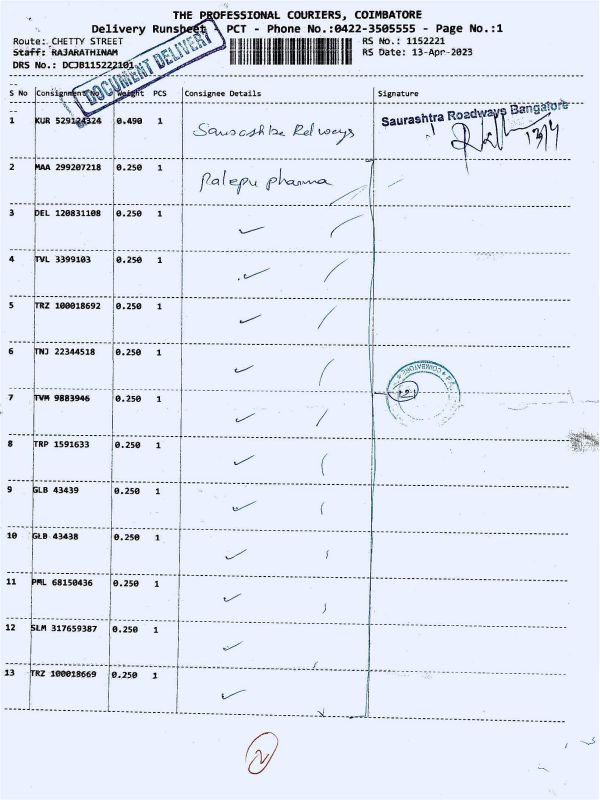 THE PROFESSIONAL COURIERS, COIMBATORE
Delivery Runsheet PCT - Phone No.:0422-3505555 - Page No.:1
Route: CHETTY STREET RS No.: 1152221
Staff: RAJARATHINAM RS Date: 13-Apr-2023
DRS No.: DCJB115222101
DOCUMENT DELIVERY
S No Consignment No Weight PCS Consignee Details Signature
1 KUR 529124324 0.490 1 Saurashtra Roadways Bangalore
13/4
2 MAA 299207218 0.250 1 Palepu pharma
3 DEL 120831108 0.250 1
4 TVL 3399103 0.250 1
5 TRZ 100018692 0.250 1
6 TNJ 22344518 0.250 1
COIMBATORE
7 TVM 9883946 0.250 1
8 TRP 1591633 0.250 1
9 GLB 43439 0.250 1
10 GLB 43438 0.250 1
11 PML 68150436 0.250 1
12 SLM 317659387 0.250 1
13 TRZ 100018669 0.250 1
2